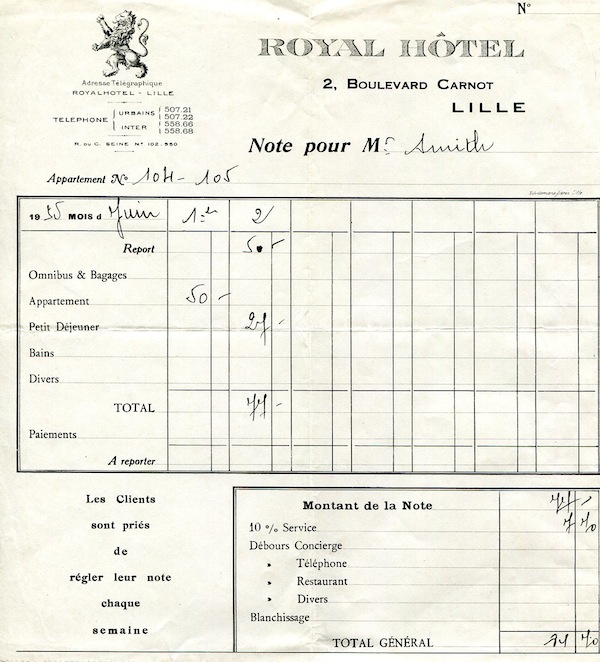 N°
ROYAL HÔTEL
Adresse Télégraphique
ROYALHOTEL - LILLE
2, BOULEVARD CARNOT
LILLE
TELEPHONE URBAINS 507.21
507.22
INTER 558.66
558.68
R. DU C. SEINE N° 102.950
Note pour Mr Smith
Appartement No 104 - 105
1935 MOIS d Juin 1er 2
Report 50 -
Omnibus & Bagages
Appartement 50 -
Petit Déjeuner 27 -
Bains
Divers
TOTAL 77 -
Paiements
A reporter
Les Clients
sont priés
de
régler leur note
chaque
semaine
Montant de la Note 77 -
10 % Service 7 70
Débours Concierge
» Téléphone
» Restaurant
» Divers
Blanchissage
TOTAL GÉNÉRAL 70